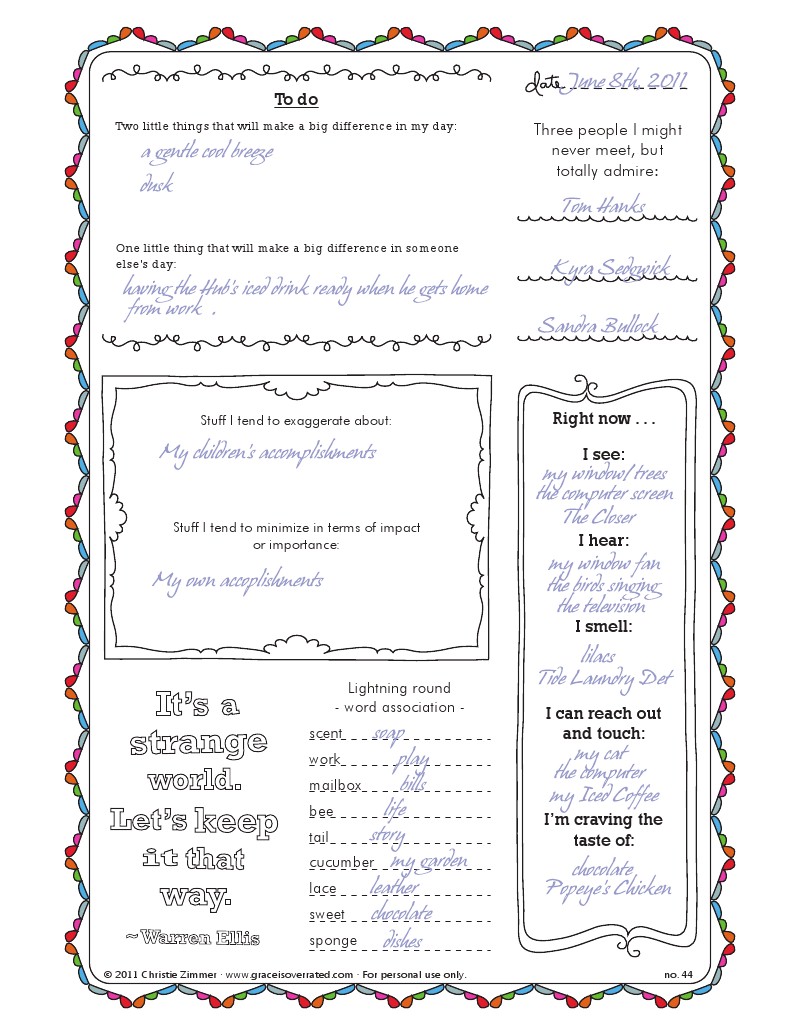 date June 8th, 2011
To do
Two little things that will make a big difference in my day:
a gentle cool breeze
dusk
One little thing that will make a big difference in someone
else's day:
having the Hub's iced drink ready when he gets home
from work .
Three people I might
never meet, but
totally admire:
Tom Hanks
Kyra Sedgwick
Sandra Bullock
Stuff I tend to exaggerate about:
My children's accomplishments
Stuff I tend to minimize in terms of impact
or importance:
My own accoplishments
Right now . . .
I see:
my window/trees
the computer screen
The Closer
I hear:
my window fan
the birds singing
the television
I smell:
lilacs
Tide Laundry Det
I can reach out
and touch:
my cat
the computer
my Iced Coffee
I'm craving the
taste of:
chocolate,
Popeye's Chicken
It's a
strange
world.
Let's keep
it that
way.
~Warren Ellis
Lightning round
- word association -
scent soap
work play
mailbox bills
bee life
tail story
cucumber my garden
lace leather
sweet chocolate
sponge dishes
© 2011 Christie Zimmer · www.graceisoverrated.com · For personal use only.
no. 44